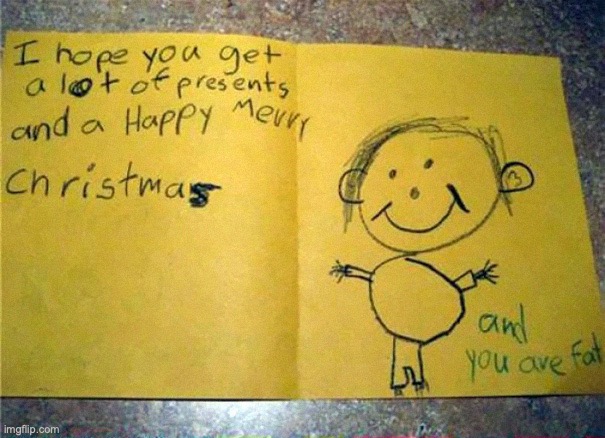 I hope you get
a lot of presents
and a Happy Merry
Christmas
and
you are Fat
imgflip.com